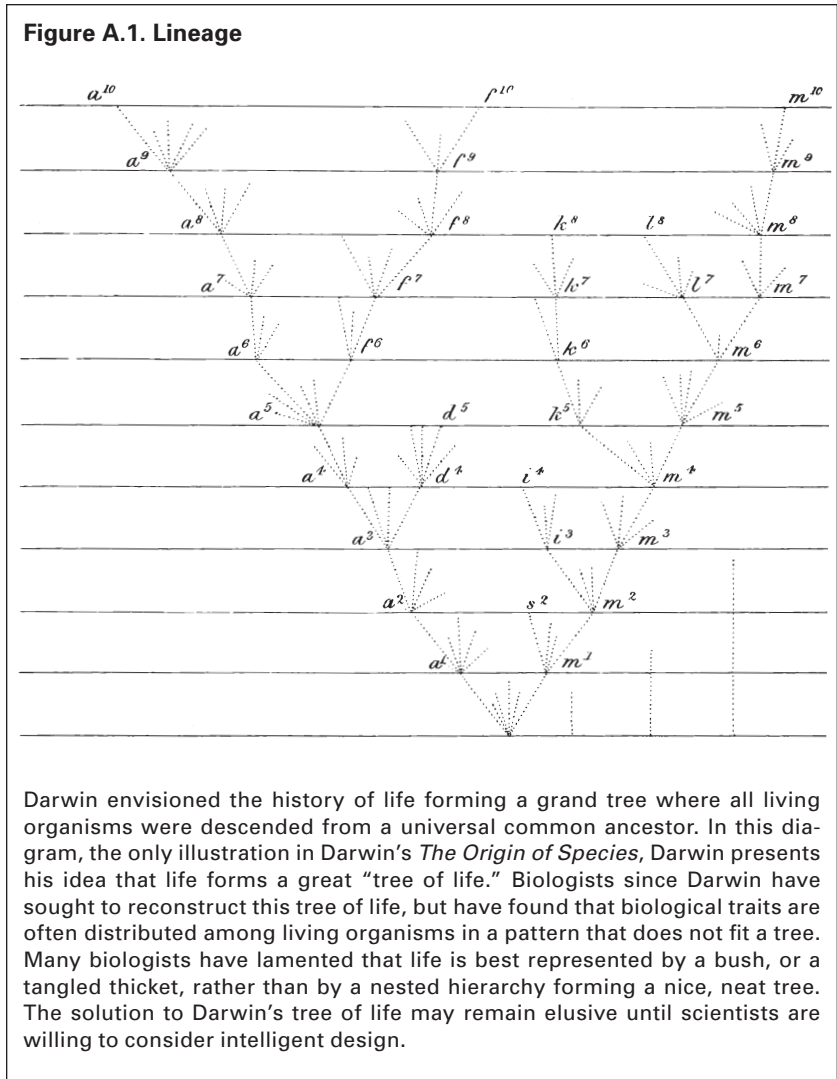 Figure A.1. Lineage
a¹⁰ f¹⁰ m¹⁰
a⁹ f⁹ m⁹
a⁸ f⁸ k⁸ l⁸ m⁸
a⁷ f⁷ k⁷ l⁷ m⁷
a⁶ f⁶ k⁶ m⁶
a⁵ d⁵ k⁵ m⁵
a⁴ d⁴ i⁴ m⁴
a³ i³ m³
a² s² m²
a¹ m¹
Darwin envisioned the history of life forming a grand tree where all living
organisms were descended from a universal common ancestor. In this dia-
gram, the only illustration in Darwin's The Origin of Species, Darwin presents
his idea that life forms a great “tree of life.” Biologists since Darwin have
sought to reconstruct this tree of life, but have found that biological traits are
often distributed among living organisms in a pattern that does not fit a tree.
Many biologists have lamented that life is best represented by a bush, or a
tangled thicket, rather than by a nested hierarchy forming a nice, neat tree.
The solution to Darwin's tree of life may remain elusive until scientists are
willing to consider intelligent design.